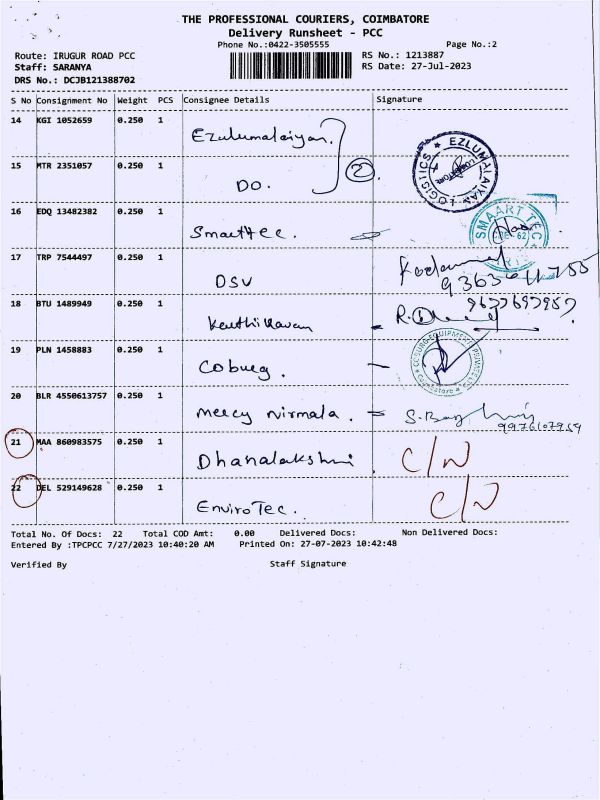 THE PROFESSIONAL COURIERS, COIMBATORE
Delivery Runsheet - PCC
Phone No.:0422-3505555
Page No.:2
Route: IRUGUR ROAD PCC
RS No.: 1213887
Staff: SARANYA
RS Date: 27-Jul-2023
DRS No.: DCJB121388702
S No Consignment No Weight PCS Consignee Details Signature
14 KGI 1052659 0.250 1 Ezulumalaiyan.
EZLUMALAIYAN LOGISTICS
15 MTR 2351057 0.250 1 DO. 2
16 EDQ 13482382 0.250 1 Smarttec.
SMAART TEC
17 TRP 7544497 0.250 1 DSV
18 BTU 1489949 0.250 1 Keerthikavan = R.
9677697957
19 PLN 1458883 0.250 1 Coburg. -
20 BLR 4550613757 0.250 1 Mercy Nirmala. =
9976107959
21 MAA 860983575 0.250 1 Dhanalakshmi C/N
22 DEL 529149628 0.250 1 EnviroTec. C/N
Total No. Of Docs: 22 Total COD Amt: 0.00 Delivered Docs: Non Delivered Docs:
Entered By :TPCPCC 7/27/2023 10:40:20 AM Printed On: 27-07-2023 10:42:48
Verified By Staff Signature